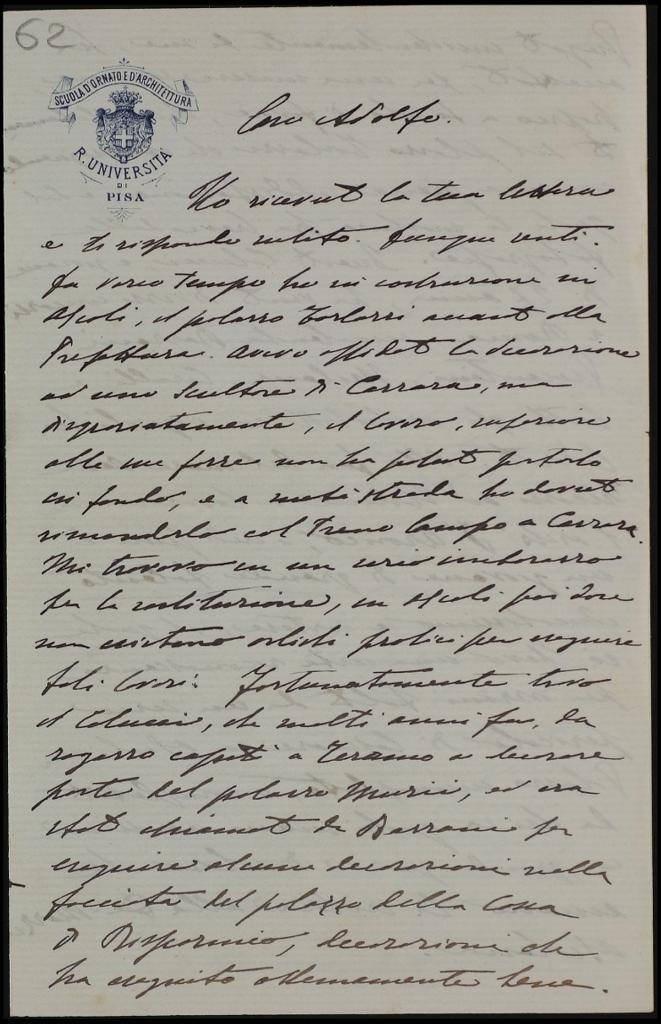 62
SCUOLA D'ORNATO E D'ARCHITETTURA
R. UNIVERSITÀ
DI
PISA
Caro Adolfo.
Ho ricevuto la tua lettera
e ti rispondo subito. Dunque senti.
Da vario tempo ho in costruzione in
Ascoli, il palazzo Tarlazzi accanto alla
Prefettura. Avevo affidato la decorazione
ad uno Scultore di Carrara, ma
disgraziatamente, il lavoro, superiore
alle sue forze non ha potuto portarlo
in fondo, e a metà strada ho dovuto
rimandarlo col Treno Lampo a Carrara.
Mi trovavo in un serio imbarazzo
per la sostituzione, in Ascoli poi dove
non esistono artisti pratici per eseguire
tali lavori. Fortunatamente trovo
il Colucci, che molti anni fa, da
ragazzo capitò a Teramo a lavorare
parte del palazzo Muzii, ed era
stato chiamato da Bazzani per
eseguire alcune decorazioni nella
facciata del palazzo della Cassa
di Risparmio, decorazioni che
ha eseguito ottimamente bene.